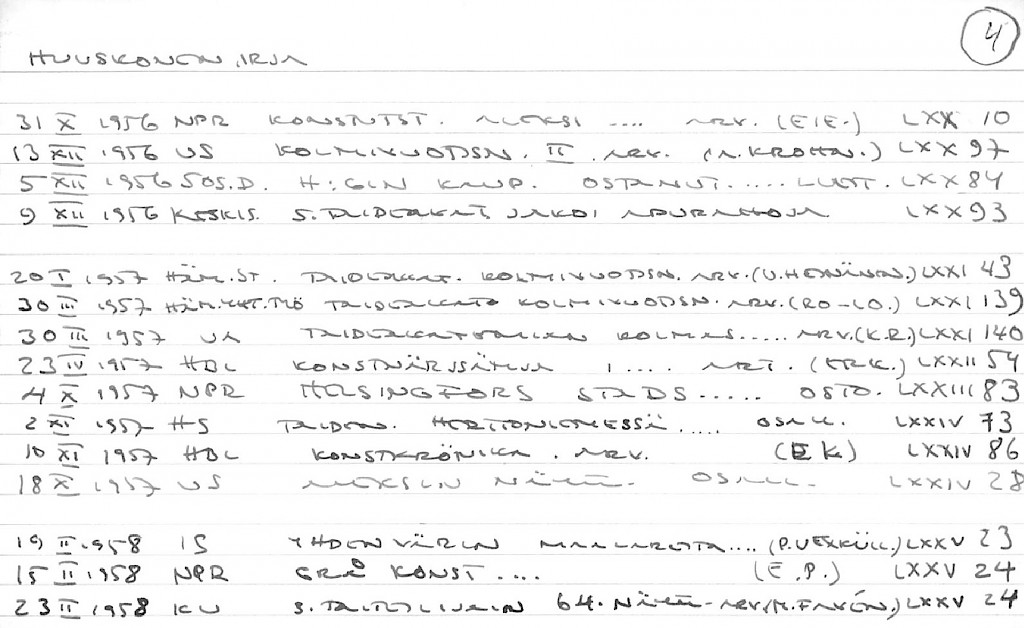 4
HUUSKONEN, IRJA
31 X 1956 NPR KONSTUTST. ALEKSI .... ARV. (E.E-) LXX 10
13 XII 1956 US KOLMIVUOTISN. II. ARV. (A. KROHN.) LXX 97
5 XII 1956 SOS.D. H:GIN KAUP. OSTANUT..... LUETT. LXX 84
9 XII 1956 KESKIS. S. TAIDEAKAT JAKOI APURAHOJA LXX 93
20 I 1957 HÄM.ST. TAIDEAKAT. KOLMIVUOTISN. ARV. (U. HEINÄNEN.) LXXI 43
30 III 1957 HÄM.KKT.TYÖ TAIDEAKATO KOLMIVUOTISN. ARV. (RO-LO.) LXXI 139
30 III 1957 UA TAIDEAKATEMIAN KOLMAS..... ARV. (K.R.) LXXI 140
23 IV 1957 HBL KONSTNÄRSSÄMJA I .... ART. (ERK.) LXXII 54
4 X 1957 NPR HELSINGFORS STADS ..... OSTO. LXXIII 83
2 XI 1957 HS TAIDEN. HERTTONIEMESSÄ .... OSALL. LXXIV 73
10 XI 1957 HBL KONSTKRÖNIKA. ARV. (E K) LXXIV 86
18 X 1957 US ALEKSIN NÄYTT- OSALL- LXXIV 28
19 II 1958 IS YHDEN VÄRIN MAALAREITA .... (P. UEXKÜLL.) LXXV 23
15 II 1958 NPR GRÅ KONST .... (E.P.) LXXV 24
23 II 1958 KU S. TAITEILIJAIN 64. NÄYTT- ARV. (H. FAVÉN.) LXXV 24